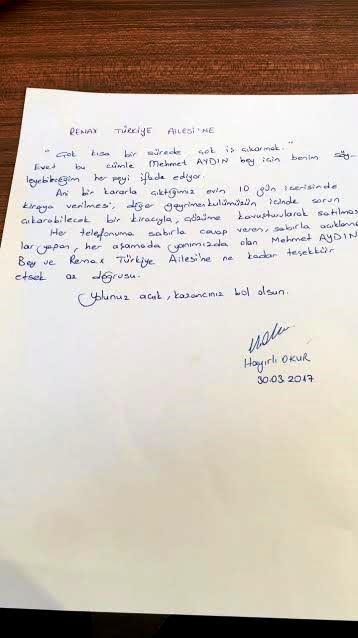 REMAX TÜRKİYE AİLESİ'NE
"Çok kısa bir sürede çok iş çıkarmak."
Evet bu cümle Mehmet AYDIN bey için benim söy-
leyebileceğim her şeyi ifade ediyor.
Ani bir kararla çıktığımız evin 10 gün içerisinde
kiraya verilmesi, diğer gayrimenkulümüzün içinde sorun
çıkarabilecek bir kiracıyla, çözüme kavuşturularak satılması
Her telefonuma sabırla cevap veren, sabırla açıklama
lar yapan, her aşamada yanımızda olan Mehmet AYDIN
Bey ve Remax Türkiye Ailesi'ne ne kadar teşekkür
etsek az doğrusu.
Yolunuz açık, kazancınız bol olsun.
Hayırlı OKUR
30.03.2017